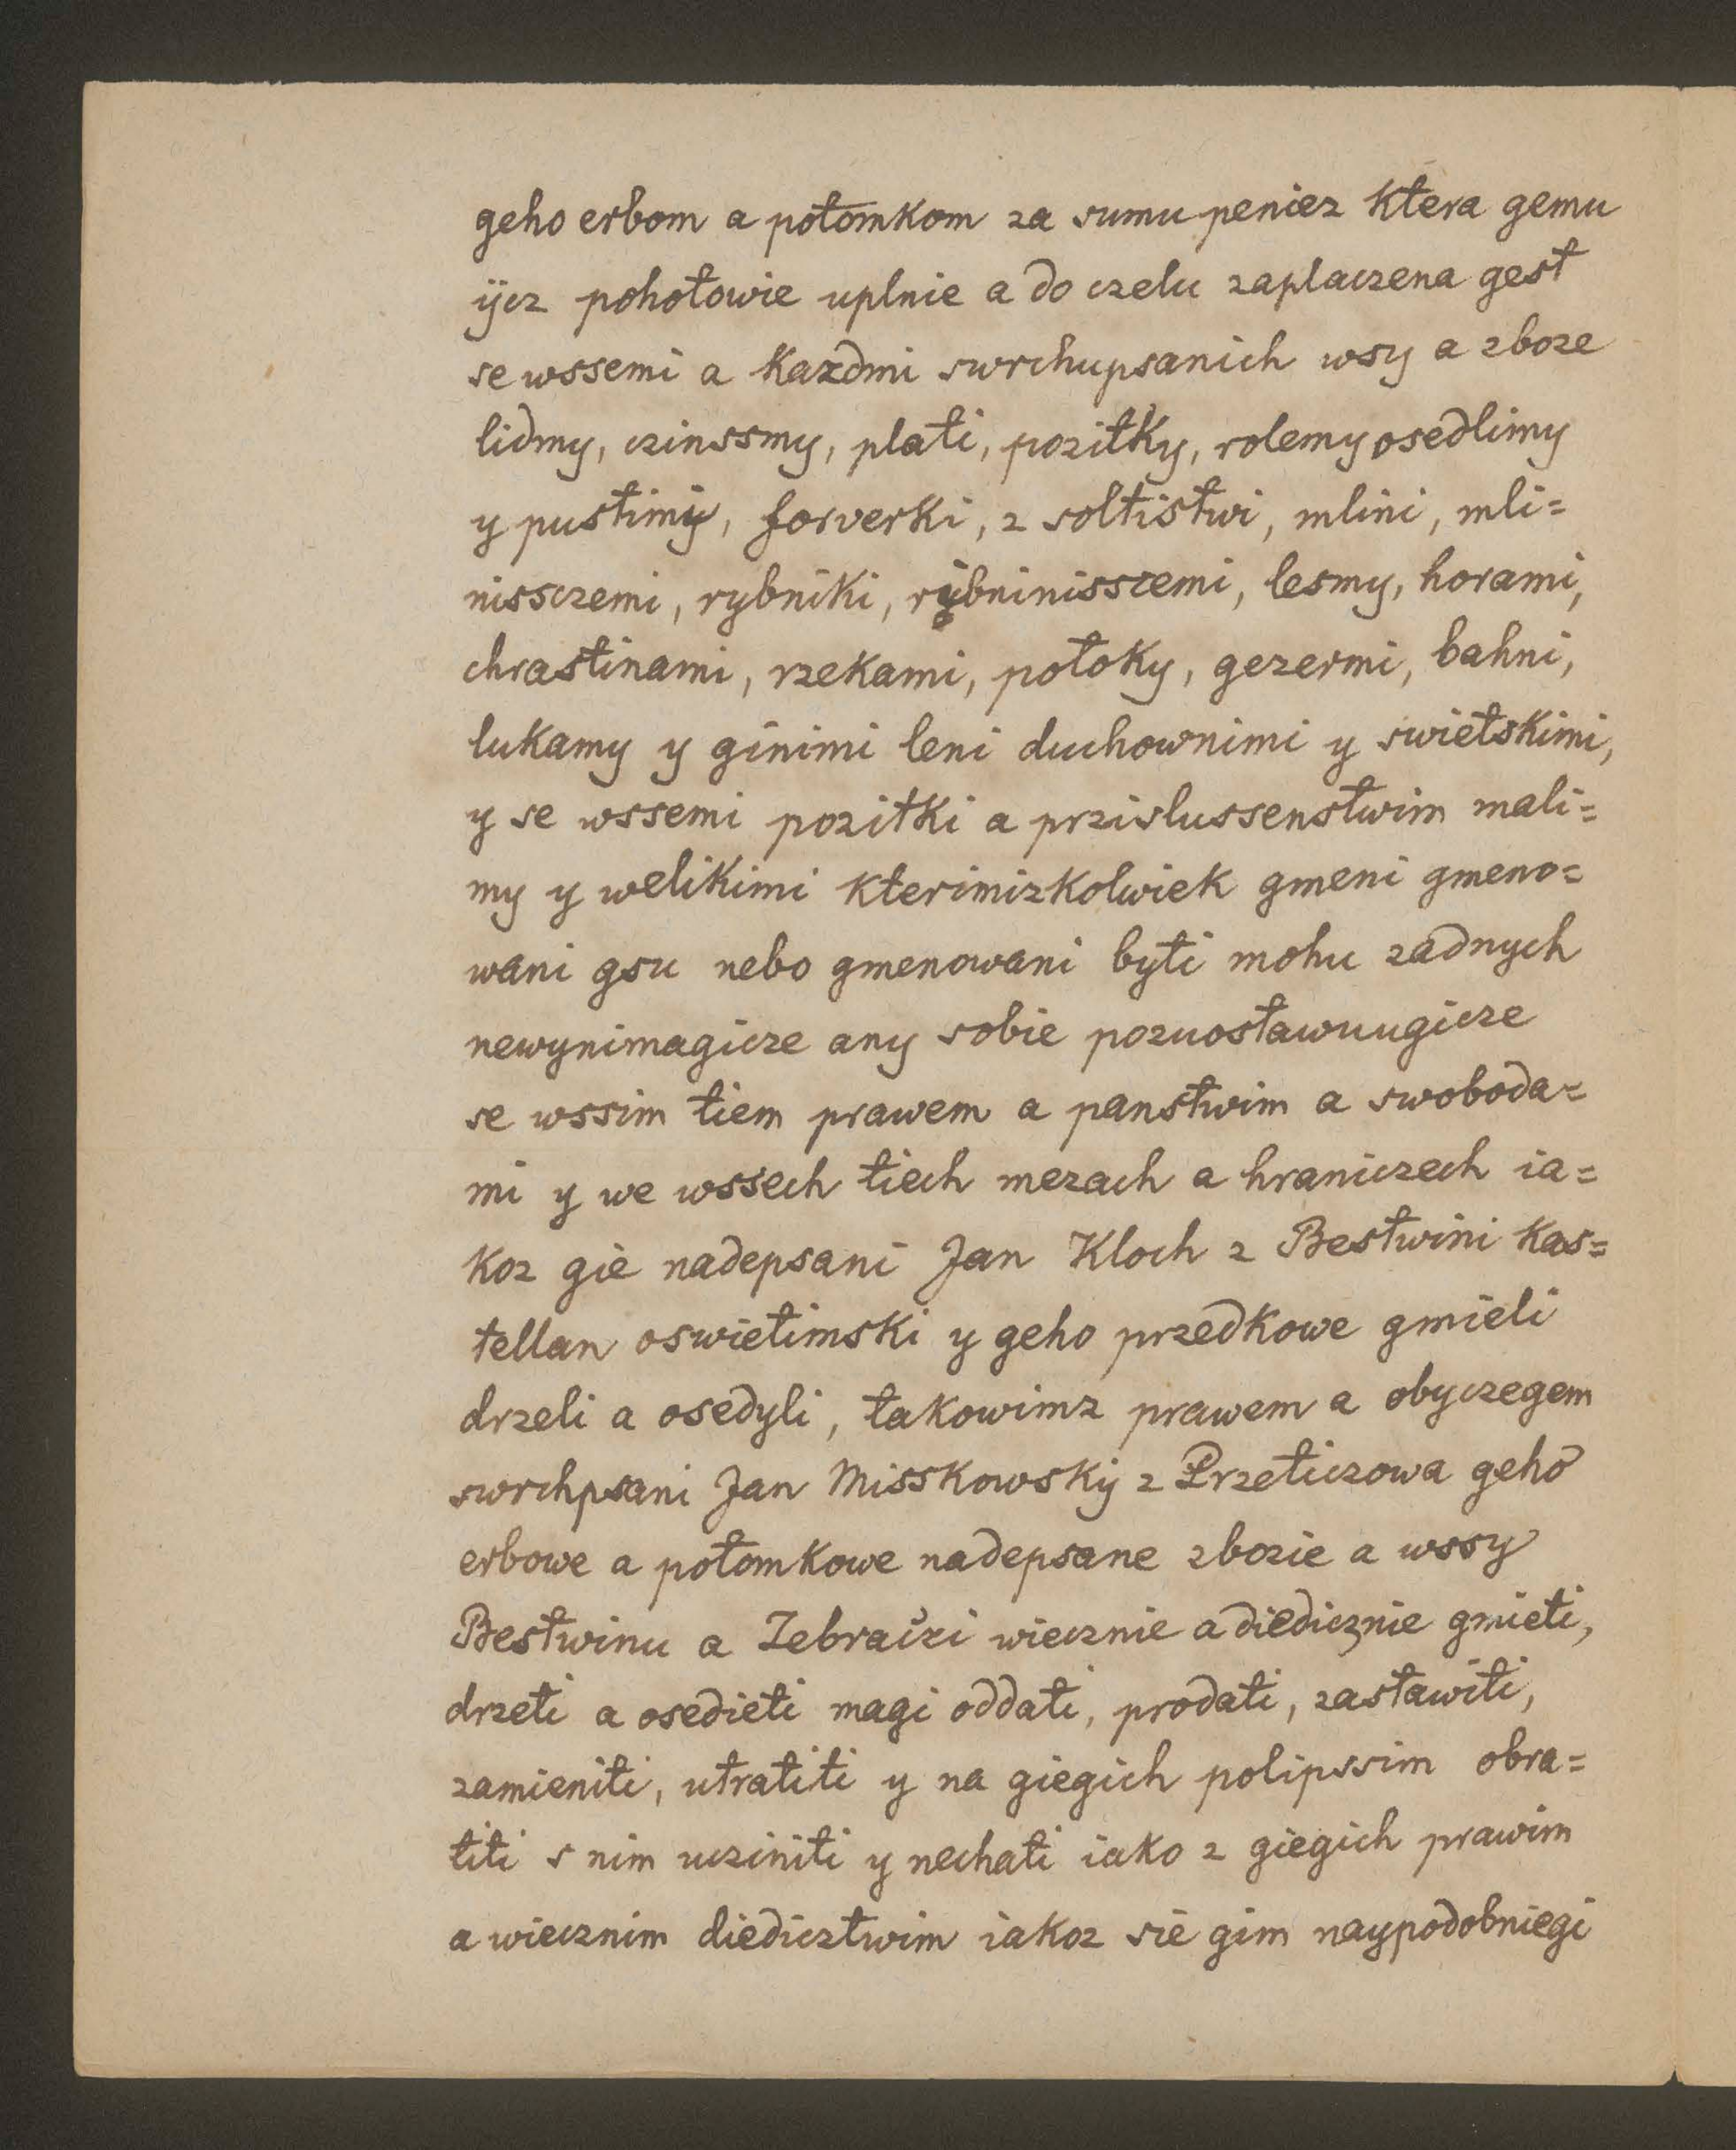 geho erbom a potomkom za sumu peniez ktera gemu
ÿcz pohotowie uplnie a do czelu zaplaczena gest
se wssemi a kazdmi swrchupsanich wsy a zboze
lidmy, czinssmy, plati, pozitky, rolemy osedlimy
y pustimy, forverki, z soltistwi, mlini, mli=
nissczemi, rybniki, rybninissczemi, lesmy, horami,
chrastinami, rzekami, potoky, gezermi, bahni,
lukamy y ginimi leni duchownimi y swietskimi,
y se wssemi pozitki a przislussenstwim mali=
my y welikimi kterimizkolwiek gmeni gmeno=
wani gsu nebo gmenowani byti mohu zadnych
newynimagicze any sobie pozuostawuugicze
se wssim tiem prawem a panstwim a swoboda=
mi y we wssech tiech mezach a hraniczech ia=
koz gie nadepsani Jan Kloch z Bestwini kas=
tellan oswietimski y geho przedkowe gmieli
drzeli a osedyli, takowimz prawem a obyczegem
swrchpsani Jan Misskowský z Przeticzowa geho
erbowe a potomkowe nadepsane zbozie a wssy
Bestwinu a Zebračzi wiecznie a diedicznie gmieti,
drzeti a osedieti magi oddati, prodati, zastawiti,
zamieniti, utratiti y na giegich polipssim obra=
titi s nim ucziniti y nechati iako z giegich prawim
a wiecznim diedicztwim iakoz sie gim naypodobniegi